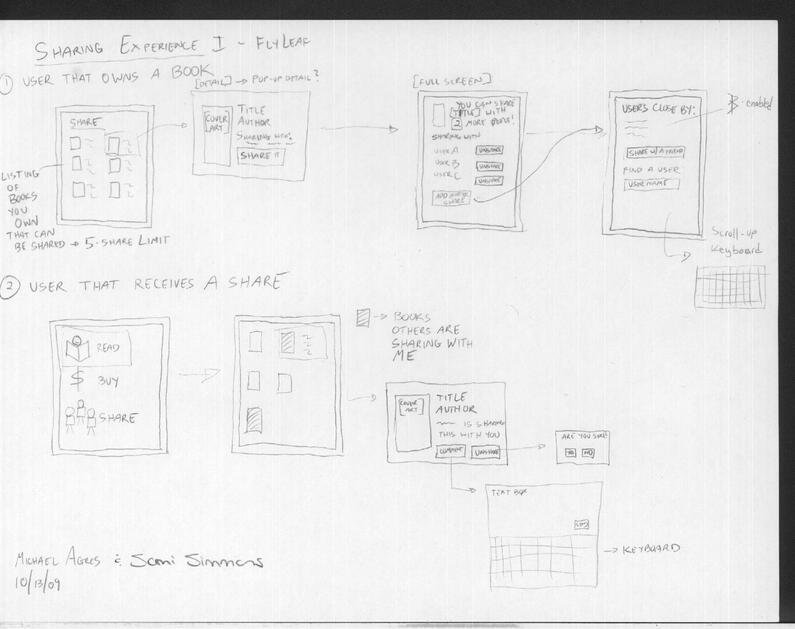 SHARING EXPERIENCE I - FLYLEAF
1 USER THAT OWNS A BOOK
[DETAIL] → POP-UP DETAIL?
SHARE
LISTING
OF
BOOKS
YOU
OWN
THAT CAN
BE SHARED → 5-SHARE LIMIT
COVER
ART
TITLE
AUTHOR
SHARING WITH:
SHARE IT
[FULL SCREEN]
YOU CAN SHARE
[TITLE] WITH
2 MORE PEOPLE!
SHARING WITH
USER A UNSHARE
USER B UNSHARE
USER C UNSHARE
ADD
SHARE
USERS CLOSE BY:
SHARE W/ A FRIEND
FIND A USER
USERNAME
enabled
Scroll-up
Keyboard
2 USER THAT RECEIVES A SHARE
READ
$ BUY
SHARE
→ BOOKS
OTHERS ARE
SHARING WITH
ME
COVER
ART
TITLE
AUTHOR
IS SHARING
THIS WITH YOU
COMMENT UNSHARE
ARE YOU SURE?
YES NO
TEXT BOX
→ KEYBOARD
MICHAEL AGRES & Sami Simmons
10/13/09